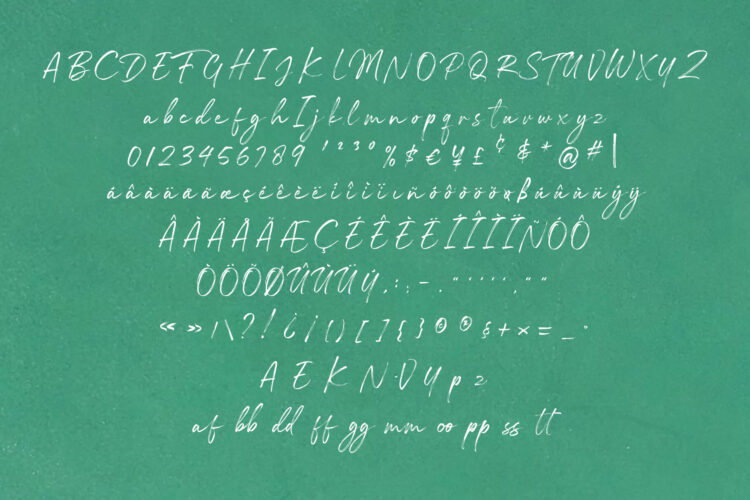 ABCDEFGHIJKLMNOPQRSTUVWXYZ
abcdefghIjklmnopqrstuvwxyz
0123456789 ¹²³⁰%$€¥£¢&*@#|
áâàäåãæçéêèëíîìïıñóôòöõøßúûùüýÿ
ÂÀÄÅÃÆÇÉÊÈËÍÎÌÏÑÓÔ
ÒÖÕØÛÙÜÝ
«»/\?!¿¡()[]{}©®§+×=_°
AEKNVYpz
af bb dd ff gg mm oo pp ss tt